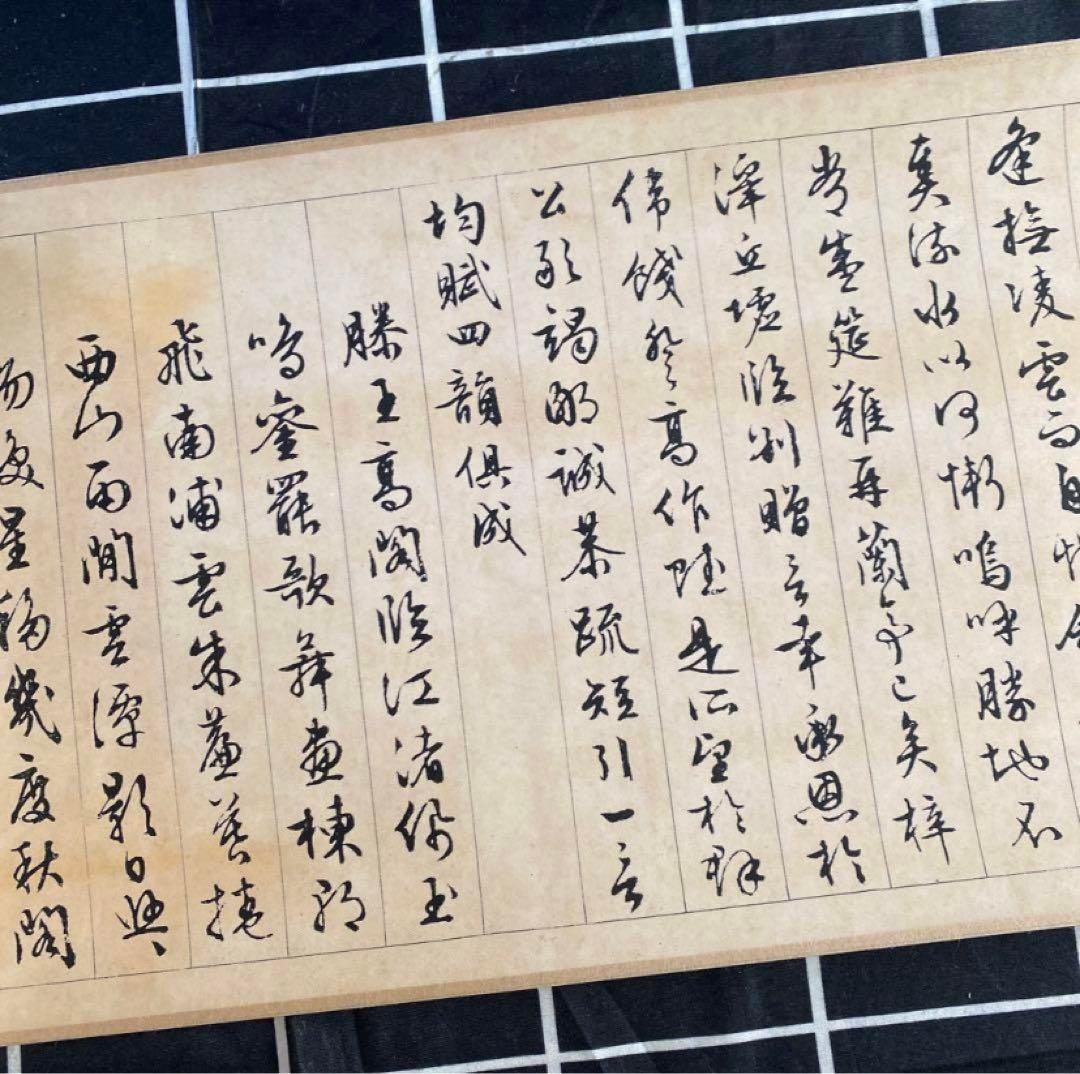 逢撫凌雲而自惜
奏流水以何慚嗚呼勝地不
常盛筵難再蘭亭已矣梓
澤丘墟臨別贈言幸承恩於
偉餞登高作賦是所望於群
公敢竭鄙誠恭疏短引一言
均賦四韻俱成
滕王高閣臨江渚佩玉
鳴鑾罷歌舞畫棟朝
飛南浦雲朱簾暮捲
西山雨閒雲潭影日悠〻
物換星移幾度秋閣